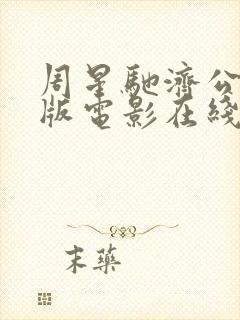 周星馳濟公
版電影在綫
末藥